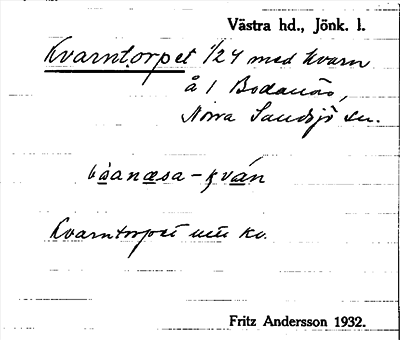 Västra hd., Jönk. l.
Kvarntorpet 1/24 med Kvarn
å 1 Bodanäs,
Norra Sandsjö sn.
båanæsa-kván
Kvarntorpet utu kv.
Fritz Andersson 1932.